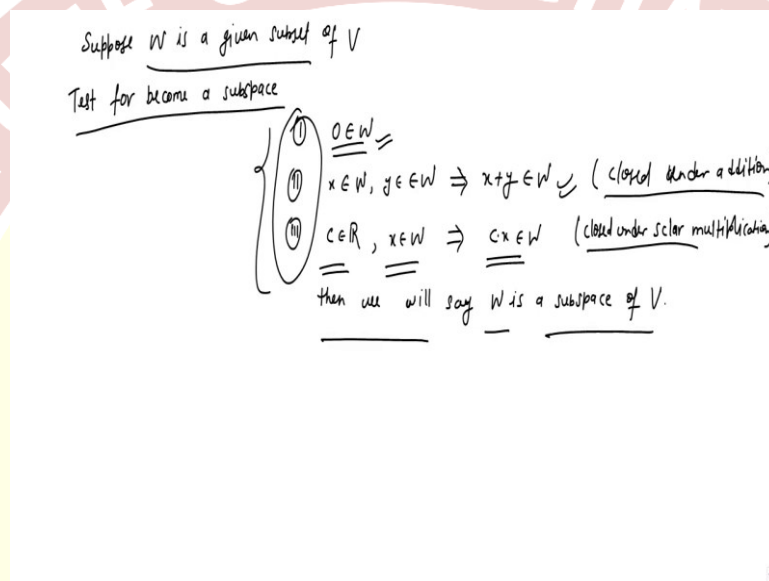 Suppose W is a given subset of V
Test for become a subspace
(i) 0 ∈ W
(ii) x ∈ W, y ∈ ∈ W ⇒ x+y ∈ W (closed under addition
(iii) c ∈ ℝ, x ∈ W ⇒ c·x ∈ W (closed under sclar multiplication
then we will say W is a subspace of V.